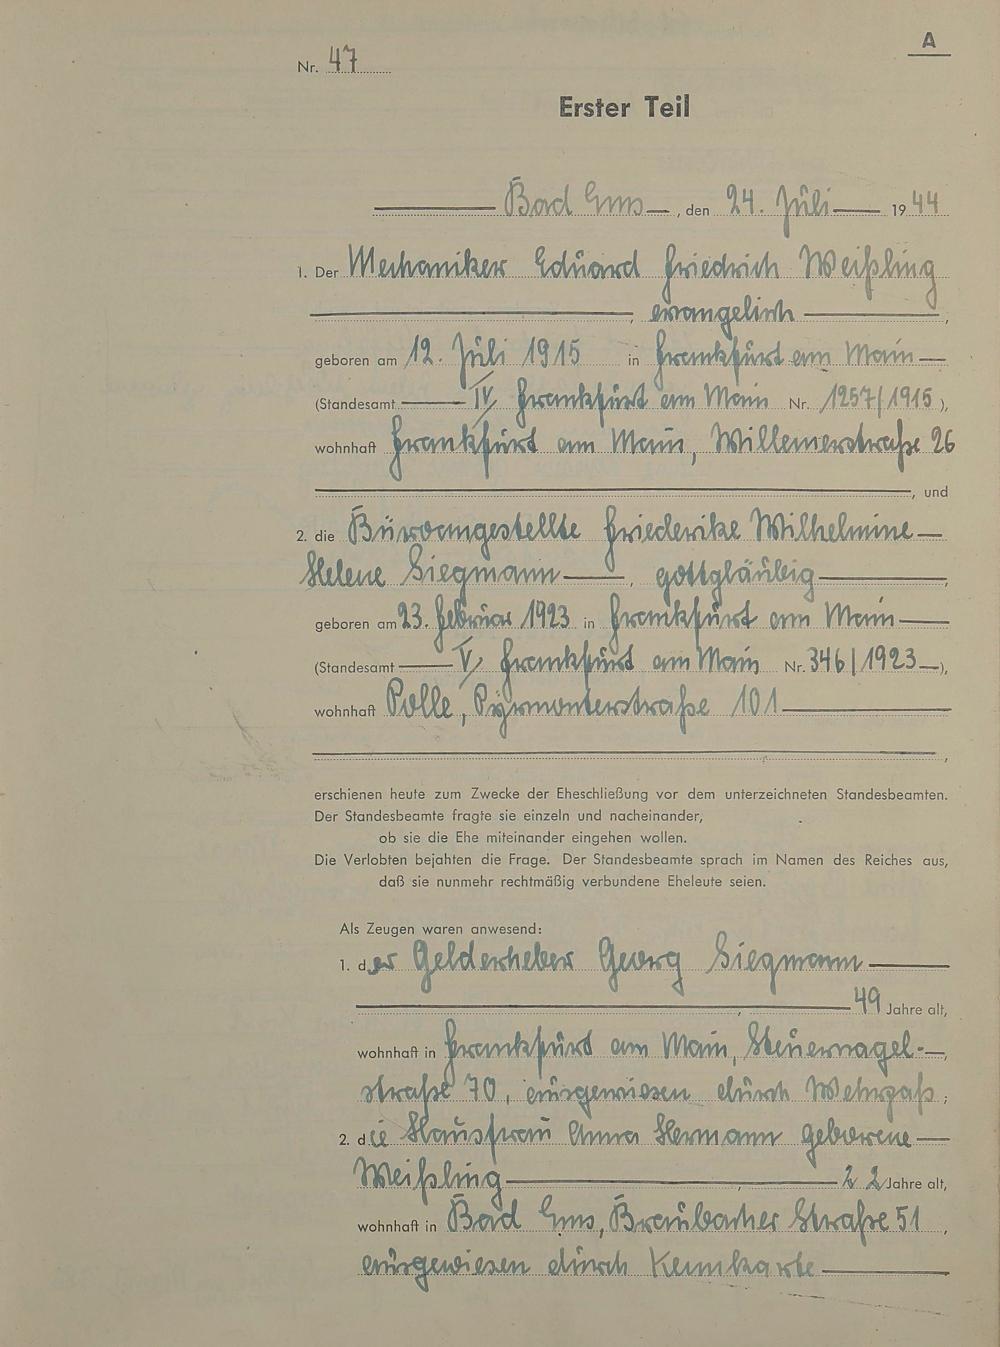 A
Nr. 47
Erster Teil
Bad Ems, den 24. Juli 1944
1. Der Mechaniker Eduard Friedrich Weißling
, evangelisch,
geboren am 12. Juli 1915 in Frankfurt am Main
(Standesamt IV, Frankfurt am Main Nr. 1257/1915),
wohnhaft Frankfurt am Main, Willemerstraße 26
, und
2. die Büroangestellte Friederike Wilhelmine
Helene Siegmann, gottgläubig,
geboren am 23. Februar 1923 in Frankfurt am Main
(Standesamt V, Frankfurt am Main Nr. 346/1923),
wohnhaft Polle, Pyrmonterstraße 101
,
erschienen heute zum Zwecke der Eheschließung vor dem unterzeichneten Standesbeamten.
Der Standesbeamte fragte sie einzeln und nacheinander,
ob sie die Ehe miteinander eingehen wollen.
Die Verlobten bejahten die Frage. Der Standesbeamte sprach im Namen des Reiches aus,
daß sie nunmehr rechtmäßig verbundene Eheleute seien.
Als Zeugen waren anwesend:
1. der Gelderheber Georg Siegmann
, 49 Jahre alt,
wohnhaft in Frankfurt am Main, Steuernagel-,
straße 70, ausgewiesen durch Wehrpaß;
2. die Hausfrau Anna Hermann geborene
Weißling, 22 Jahre alt,
wohnhaft in Bad Ems, Braubacher Straße 51,
ausgewiesen durch Kennkarte